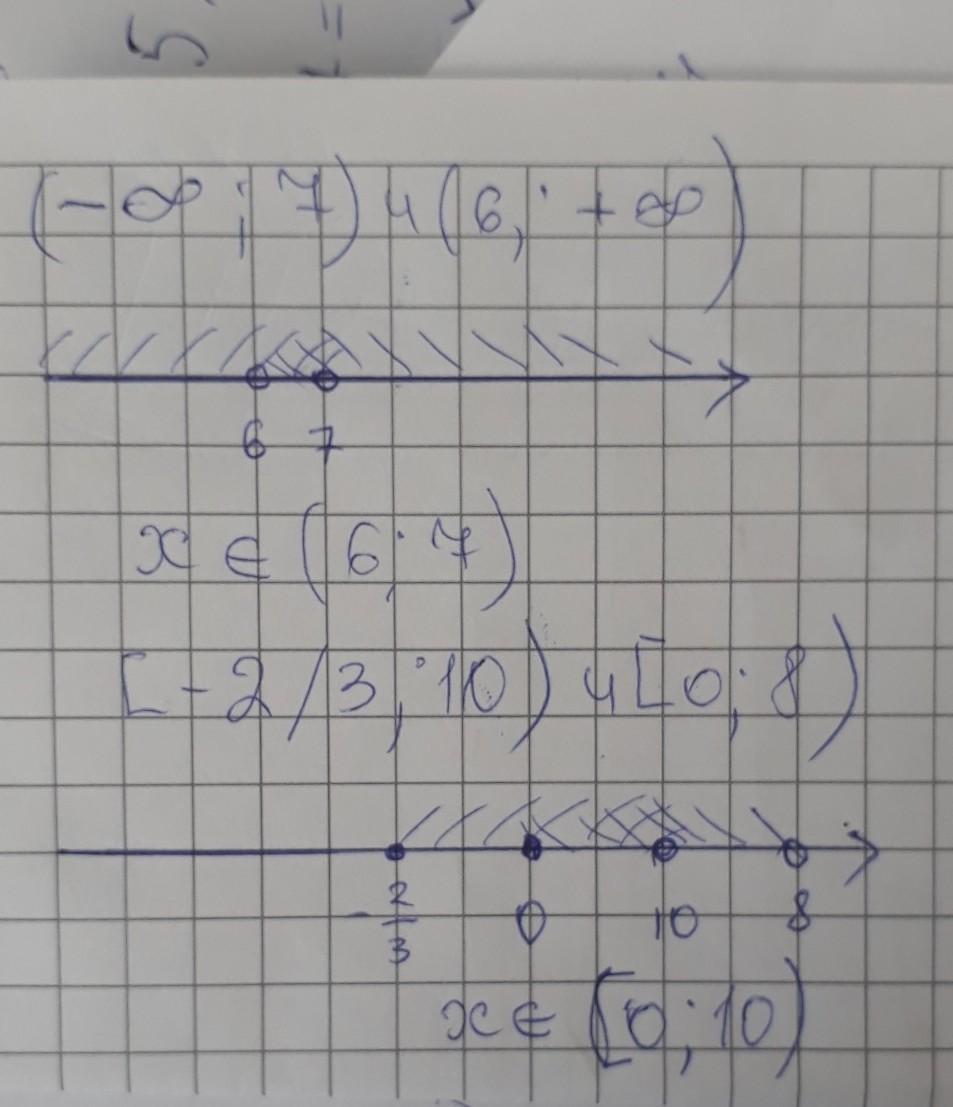 5
(-∞; 7) и (6; +∞)
6 7
x ∈ (6; 7)
[-2/3; 10) и [0; 8)
-2/3 0 10 8
x ∈ [0; 10)